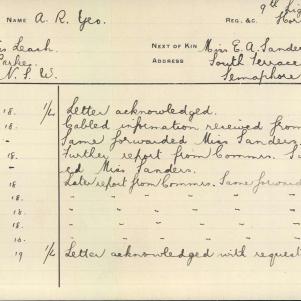 NAME A. R. Yeo. REG. &C. 9th
Leach. NEXT OF KIN Miss E. A. Sander
Parke. ADDRESS South Terrace
N. S. W. Semaphore
18. 1/4 Letter acknowledged.
18. Cabled information received from
- Same forwarded Miss Sanders.
18. Further report from Commrs.
ed Miss Sanders.
18 Later report from Commrs. Same forward
18. " " " " "
18. " " " " "
18. " " " " "
19 1/4 Letter acknowledged with request